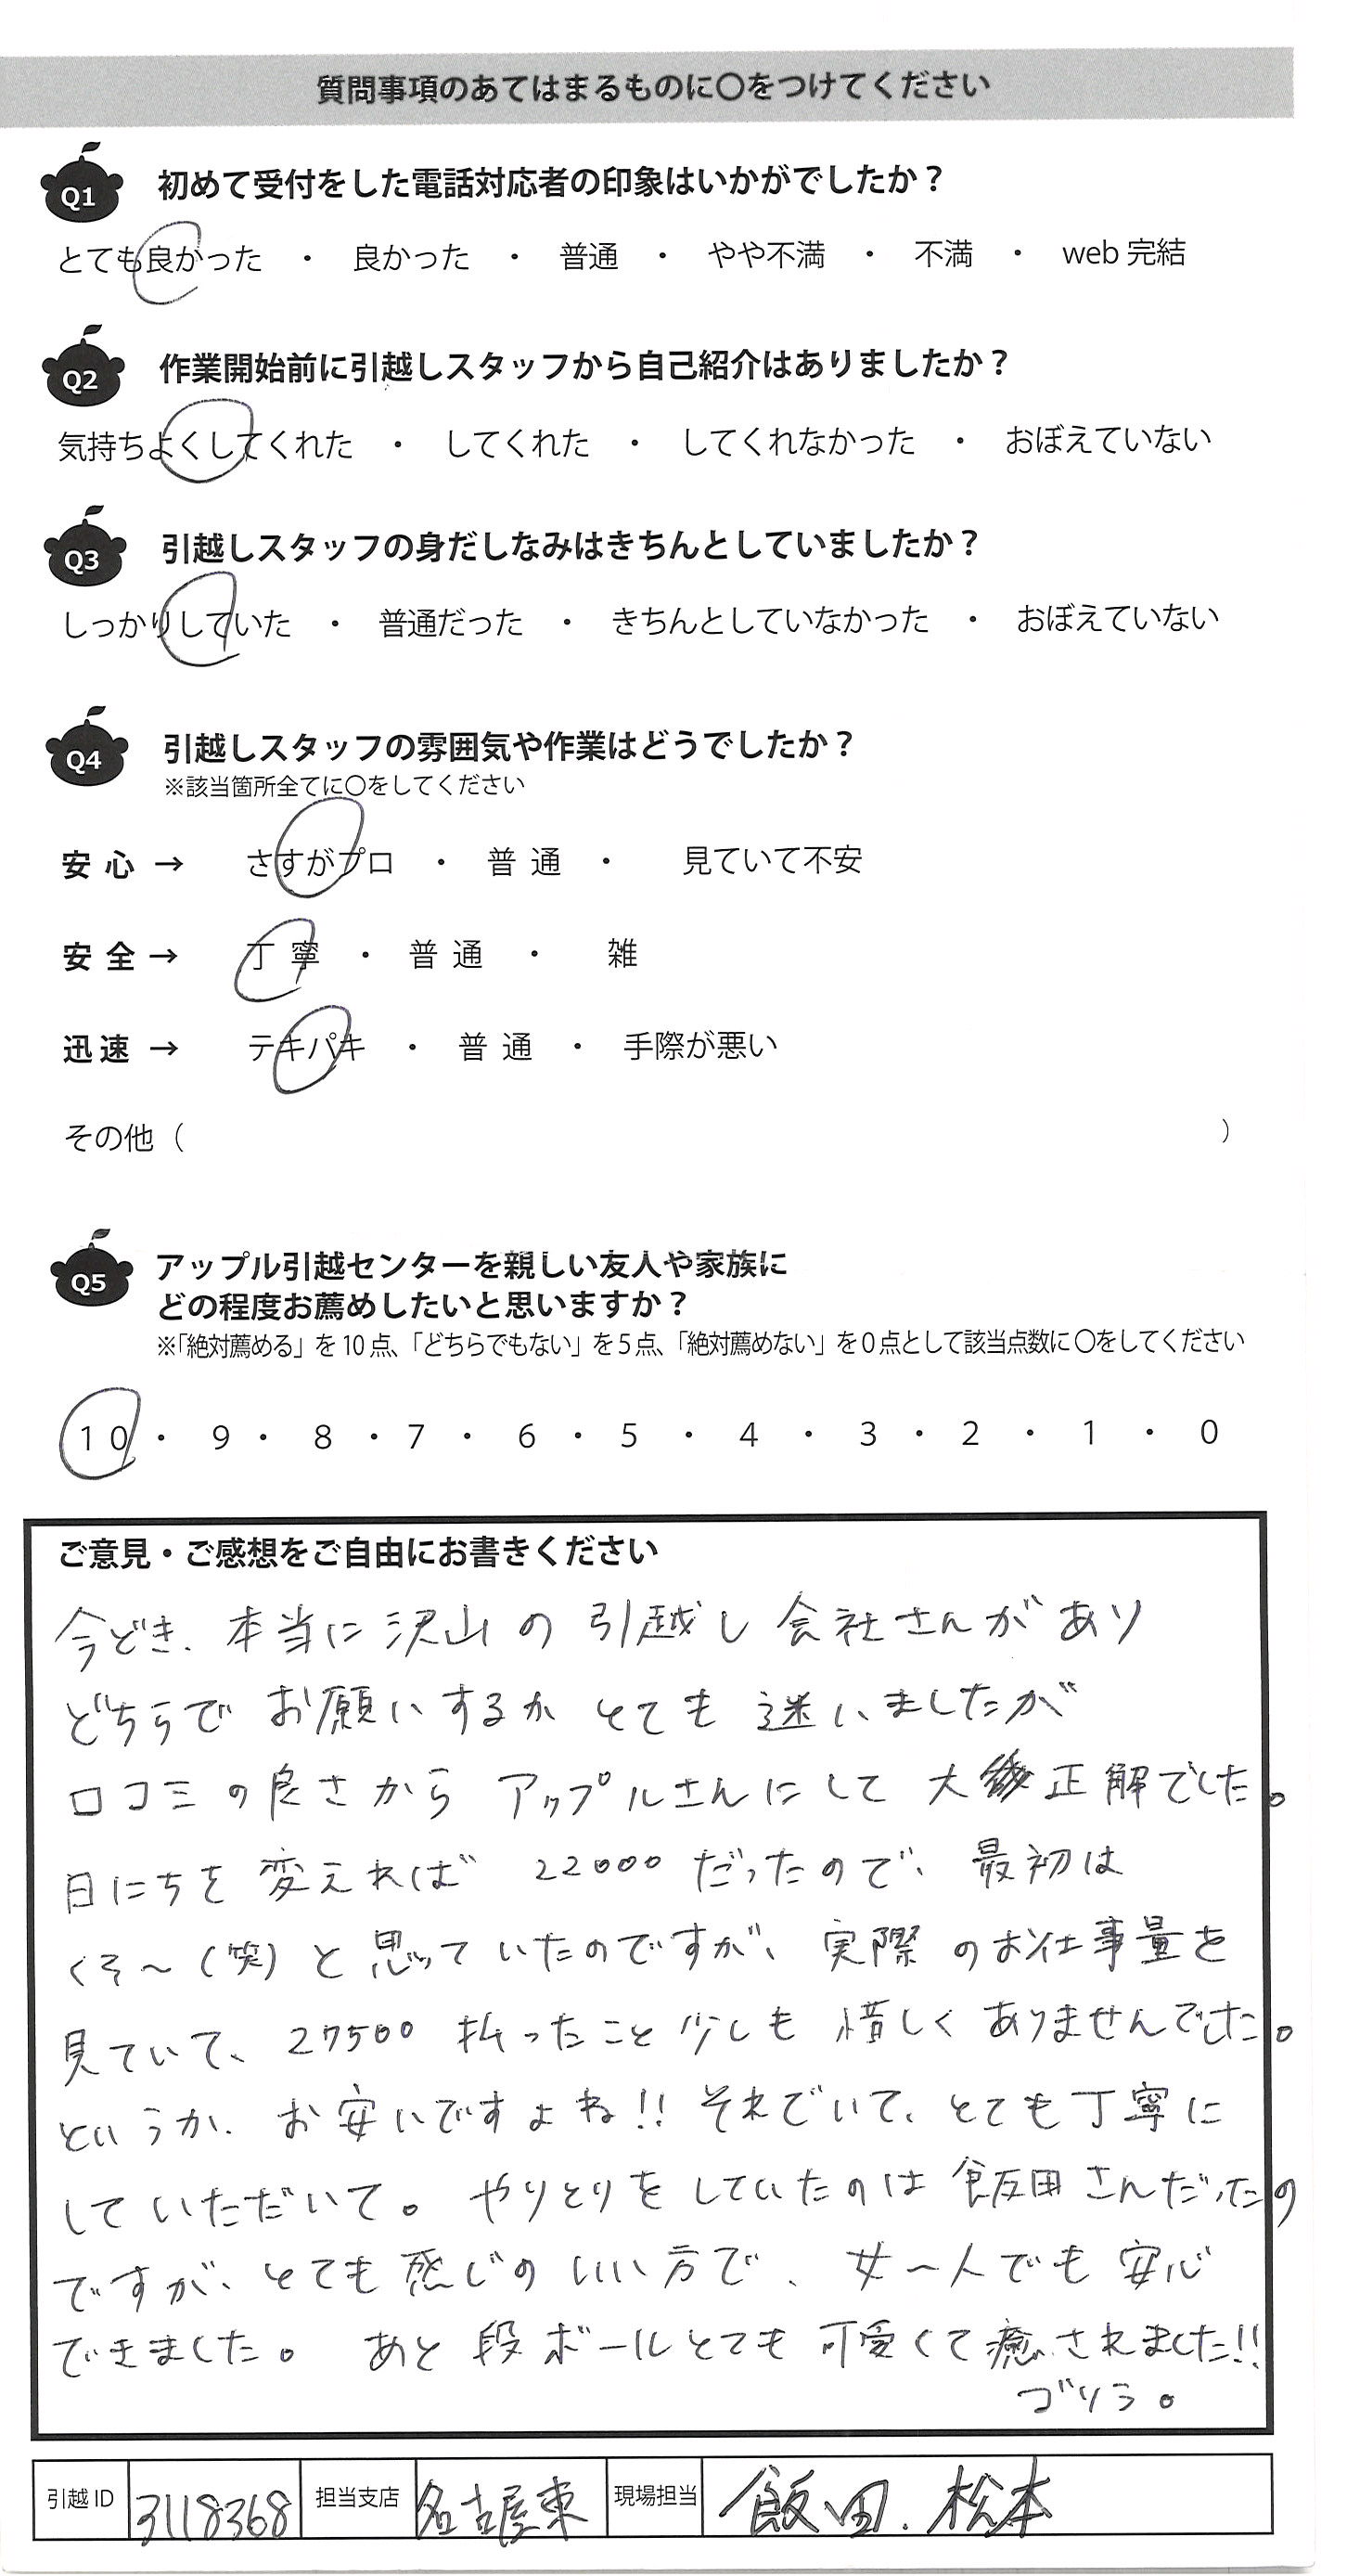 質問事項のあてはまるものに〇をつけてください
Q1 初めて受付をした電話対応者の印象はいかがでしたか？
とても良かった ・ 良かった ・ 普通 ・ やや不満 ・ 不満 ・ web 完結
Q2 作業開始前に引越しスタッフから自己紹介はありましたか？
気持ちよくしてくれた ・ してくれた ・ してくれなかった ・ おぼえていない
Q3 引越しスタッフの身だしなみはきちんとしていましたか？
しっかりしていた ・ 普通だった ・ きちんとしていなかった ・ おぼえていない
Q4 引越しスタッフの雰囲気や作業はどうでしたか？
※該当箇所全てに〇をしてください
安心 → さすがプロ ・ 普通 ・ 見ていて不安
安全 → 丁寧 ・ 普通 ・ 雑
迅速 → テキパキ ・ 普通 ・ 手際が悪い
その他（ ）
Q5 アップル引越センターを親しい友人や家族に
どの程度お薦めしたいと思いますか？
※「絶対薦める」を10点、「どちらでもない」を5点、「絶対薦めない」を0点として該当点数に〇をしてください
10 ・ 9 ・ 8 ・ 7 ・ 6 ・ 5 ・ 4 ・ 3 ・ 2 ・ 1 ・ 0
ご意見・ご感想をご自由にお書きください
今どき、本当に沢山の引越し会社さんがあり
どちらでお願いするかとても迷いましたが
口コミの良さからアップルさんにして大正解でした。
日にちを変えれば22000だったので、最初は
くそ〜(笑)と思っていたのですが、実際のお仕事量を
見ていて、27500払ったこと少しも惜しくありませんでした。
というか、お安いですよね!!それでいて、とても丁寧に
していただいて。やりとりをしていたのは飯田さんだったの
ですが、とても感じのいい方で、女一人でも安心
できました。あと段ボールとても可愛くて癒されました!!
ゴリラ。
引越ID 3118368 担当支店 名古屋東 現場担当 飯田、松本